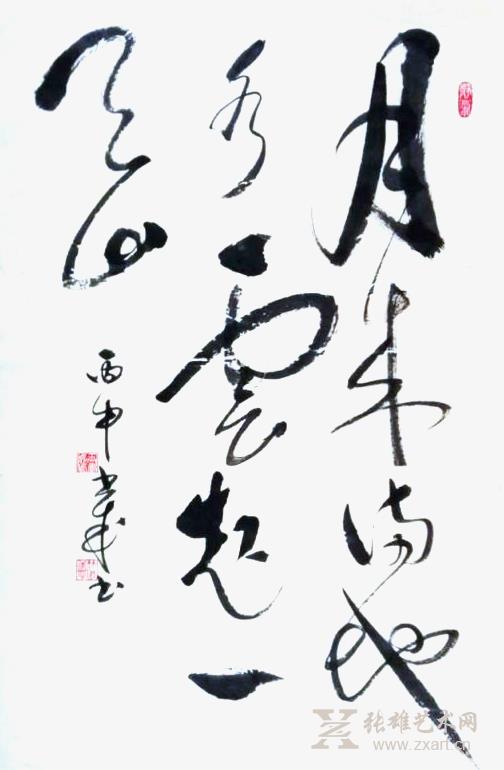 月来满地
水雲起一
天山
丙申 书
张雄艺术网
www.zxart.cn